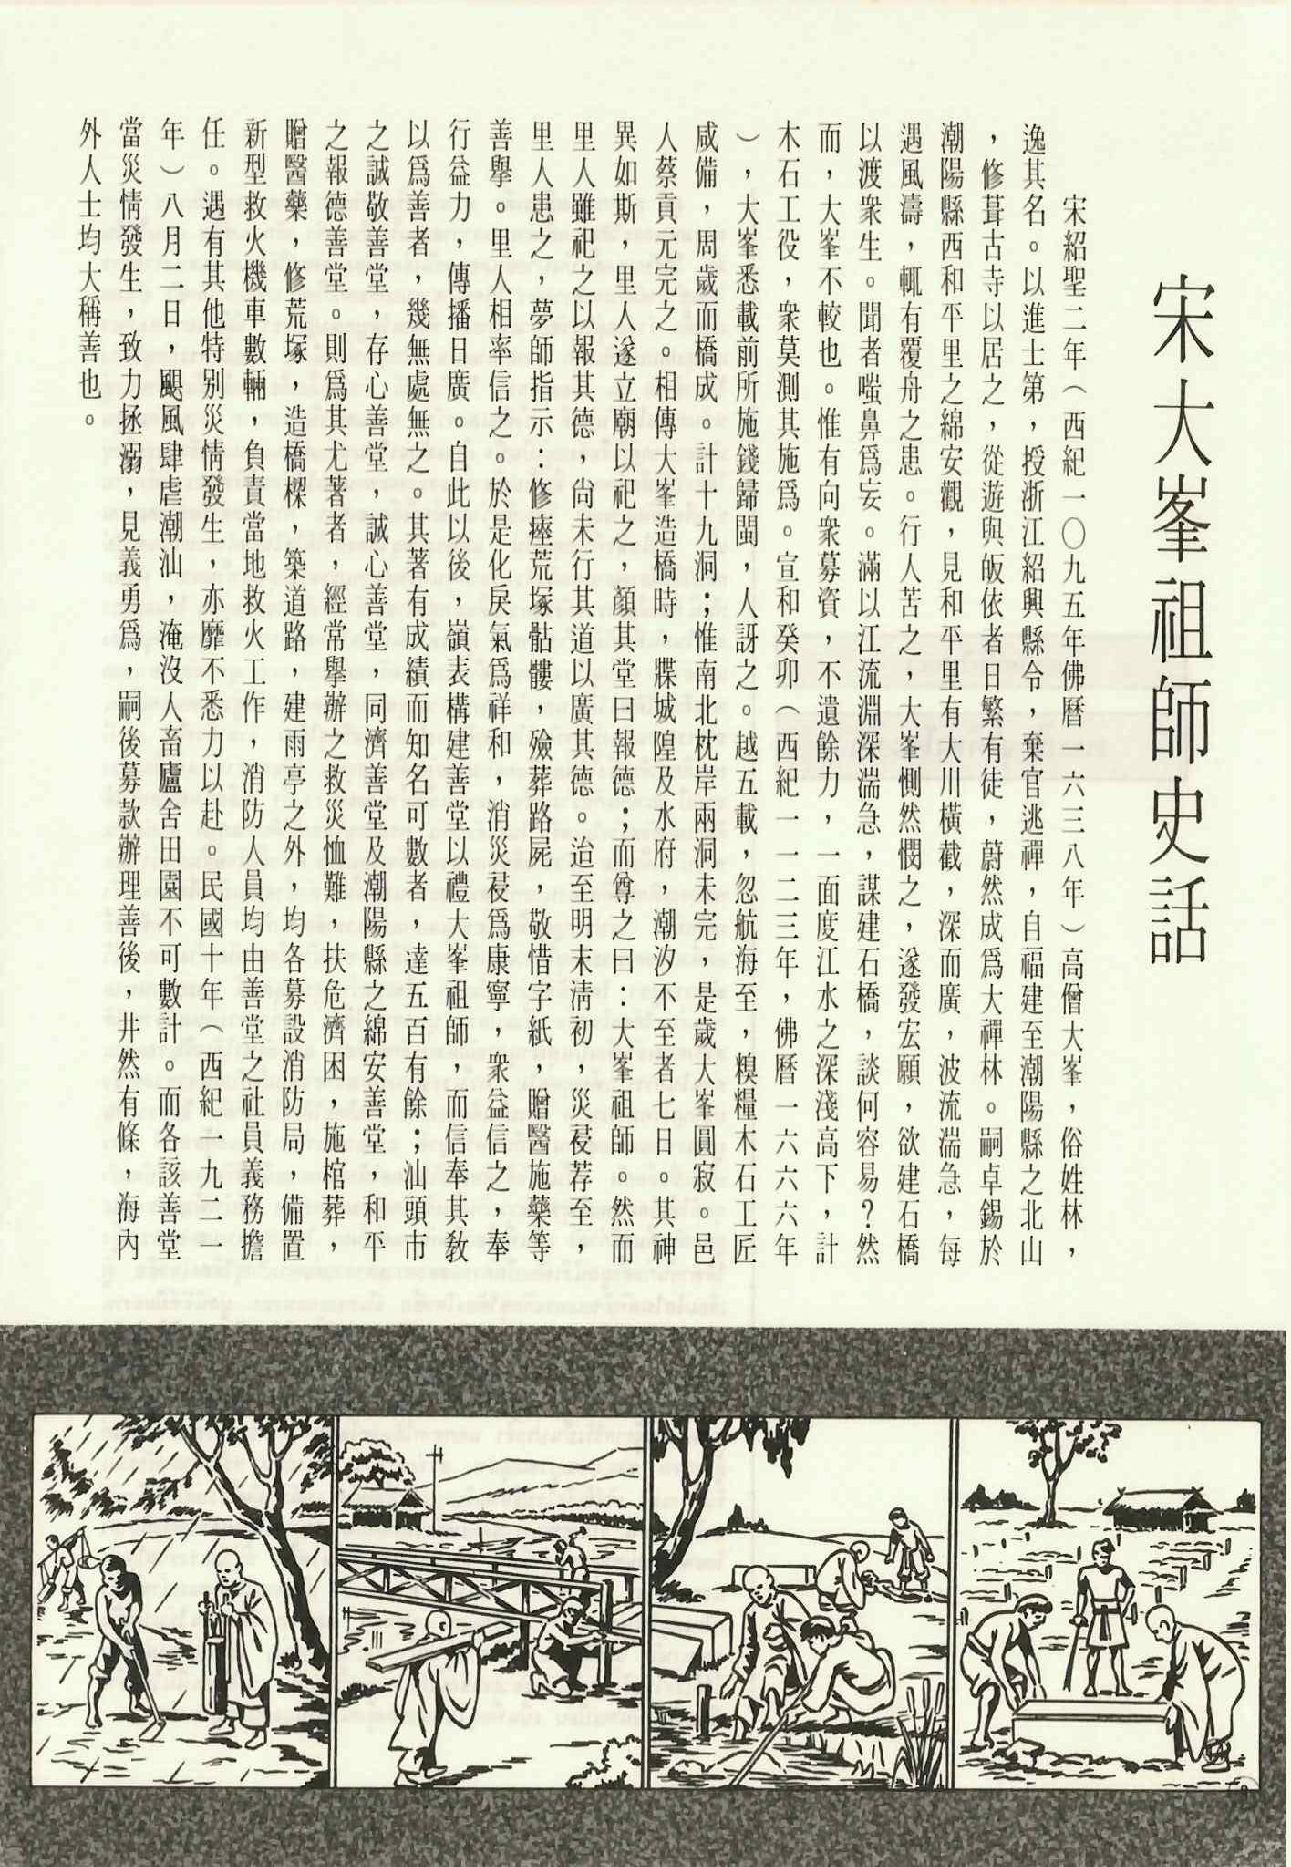 宋大峯祖師史話
宋紹聖二年（西紀一〇九五年佛曆一六三八年）高僧大峯，俗姓林，
逸其名。以進士第，授浙江紹興縣令，棄官逃禪，自福建至潮陽縣之北山
，修葺古寺以居之，從遊與皈依者日繁有徒，蔚然成爲大禪林。嗣卓錫於
潮陽縣西和平里之綿安觀，見和平里有大川橫截，深而廣，波流湍急，每
遇風濤，輒有覆舟之患。行人苦之，大峯惻然憫之，遂發宏願，欲建石橋
以渡衆生。聞者嗤鼻爲妄。滿以江流淵深湍急，謀建石橋，談何容易？然
而，大峯不較也。惟有向衆募資，不遺餘力，一面度江水之深淺高下，計
木石工役，衆莫測其施爲。宣和癸卯（西紀一一二三年，佛曆一六六六年
），大峯悉載前所施錢歸閩，人訝之。越五載，忽航海至，糗糧木石工匠
咸備，周歲而橋成。計十九洞；惟南北枕岸兩洞未完，是歲大峯圓寂。邑
人蔡貢元完之。相傳大峯造橋時，牒城隍及水府，潮汐不至者七日。其神
異如斯，里人遂立廟以祀之，顏其堂曰報德；而尊之曰：大峯祖師。然而
里人雖祀之以報其德，尙未行其道以廣其德。迨至明末淸初，災祲荐至，
里人患之，夢師指示：修瘞荒塚骷髏，殮葬路屍，敬惜字紙，贈醫施藥等
善擧。里人相率信之。於是化戾氣爲祥和，消災祲爲康寧，衆益信之，奉
行益力，傳播日廣。自此以後，嶺表構建善堂以禮大峯祖師，而信奉其敎
以爲善者，幾無處無之。其著有成績而知名可數者，達五百有餘；汕頭市
之誠敬善堂，存心善堂，誠心善堂，同濟善堂及潮陽縣之綿安善堂，和平
之報德善堂。則爲其尤著者，經常擧辦之救災恤難，扶危濟困，施棺葬，
贈醫藥，修荒塚，造橋樑，築道路，建雨亭之外，均各募設消防局，備置
新型救火機車數輛，負責當地救火工作，消防人員均由善堂之社員義務擔
任。遇有其他特別災情發生，亦靡不悉力以赴。民國十年（西紀一九二一
年）八月二日，颶風肆虐潮汕，淹沒人畜廬舍田園不可數計。而各該善堂
當災情發生，致力拯溺，見義勇爲，嗣後募款辦理善後，井然有條，海內
外人士均大稱善也。